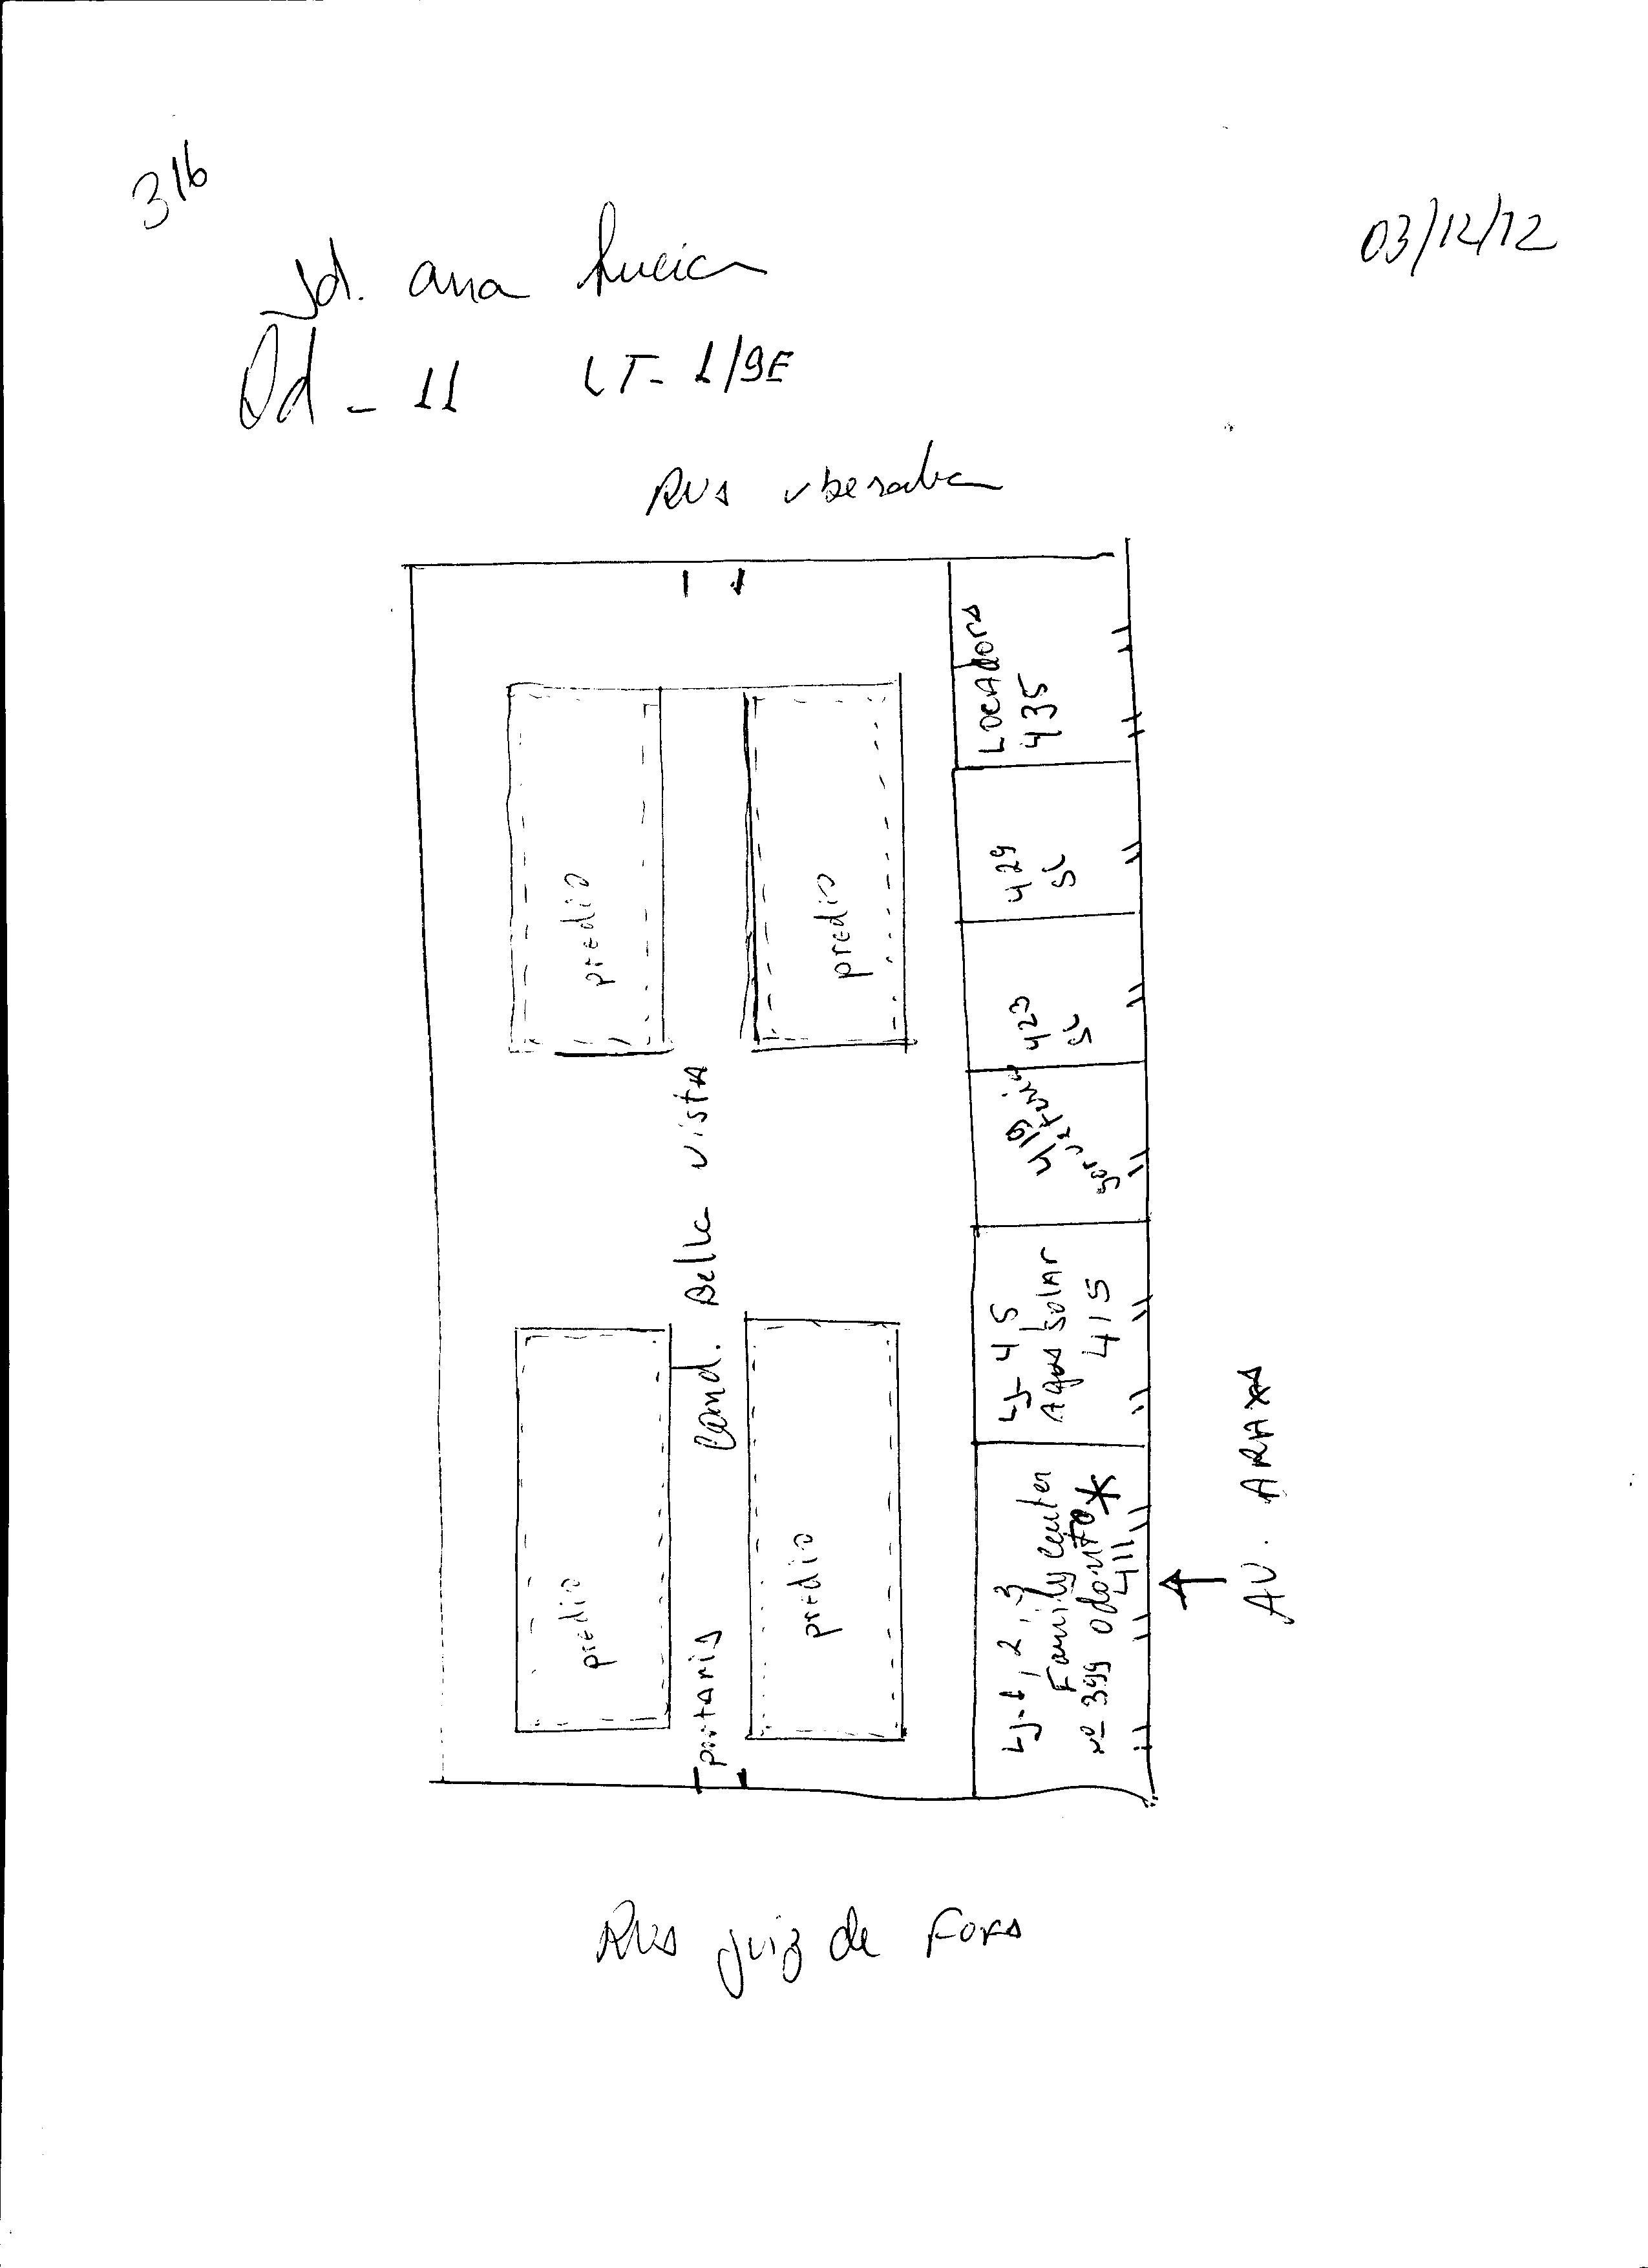 316
03/12/12
Jd. ana Lucia
Qd - 11 LT- 1/9E
RUA uberaba
LOCADORA
435
predio
predio
429
SL
423
SL
419
Cond. Bella vista
Lj- 4 5
Aqua Solar
415
predio
predio
portaria
Lj-1, 2, 3
Family center
nº 399 odonto *
411
AV. ARAXA
RUA juiz de Fora